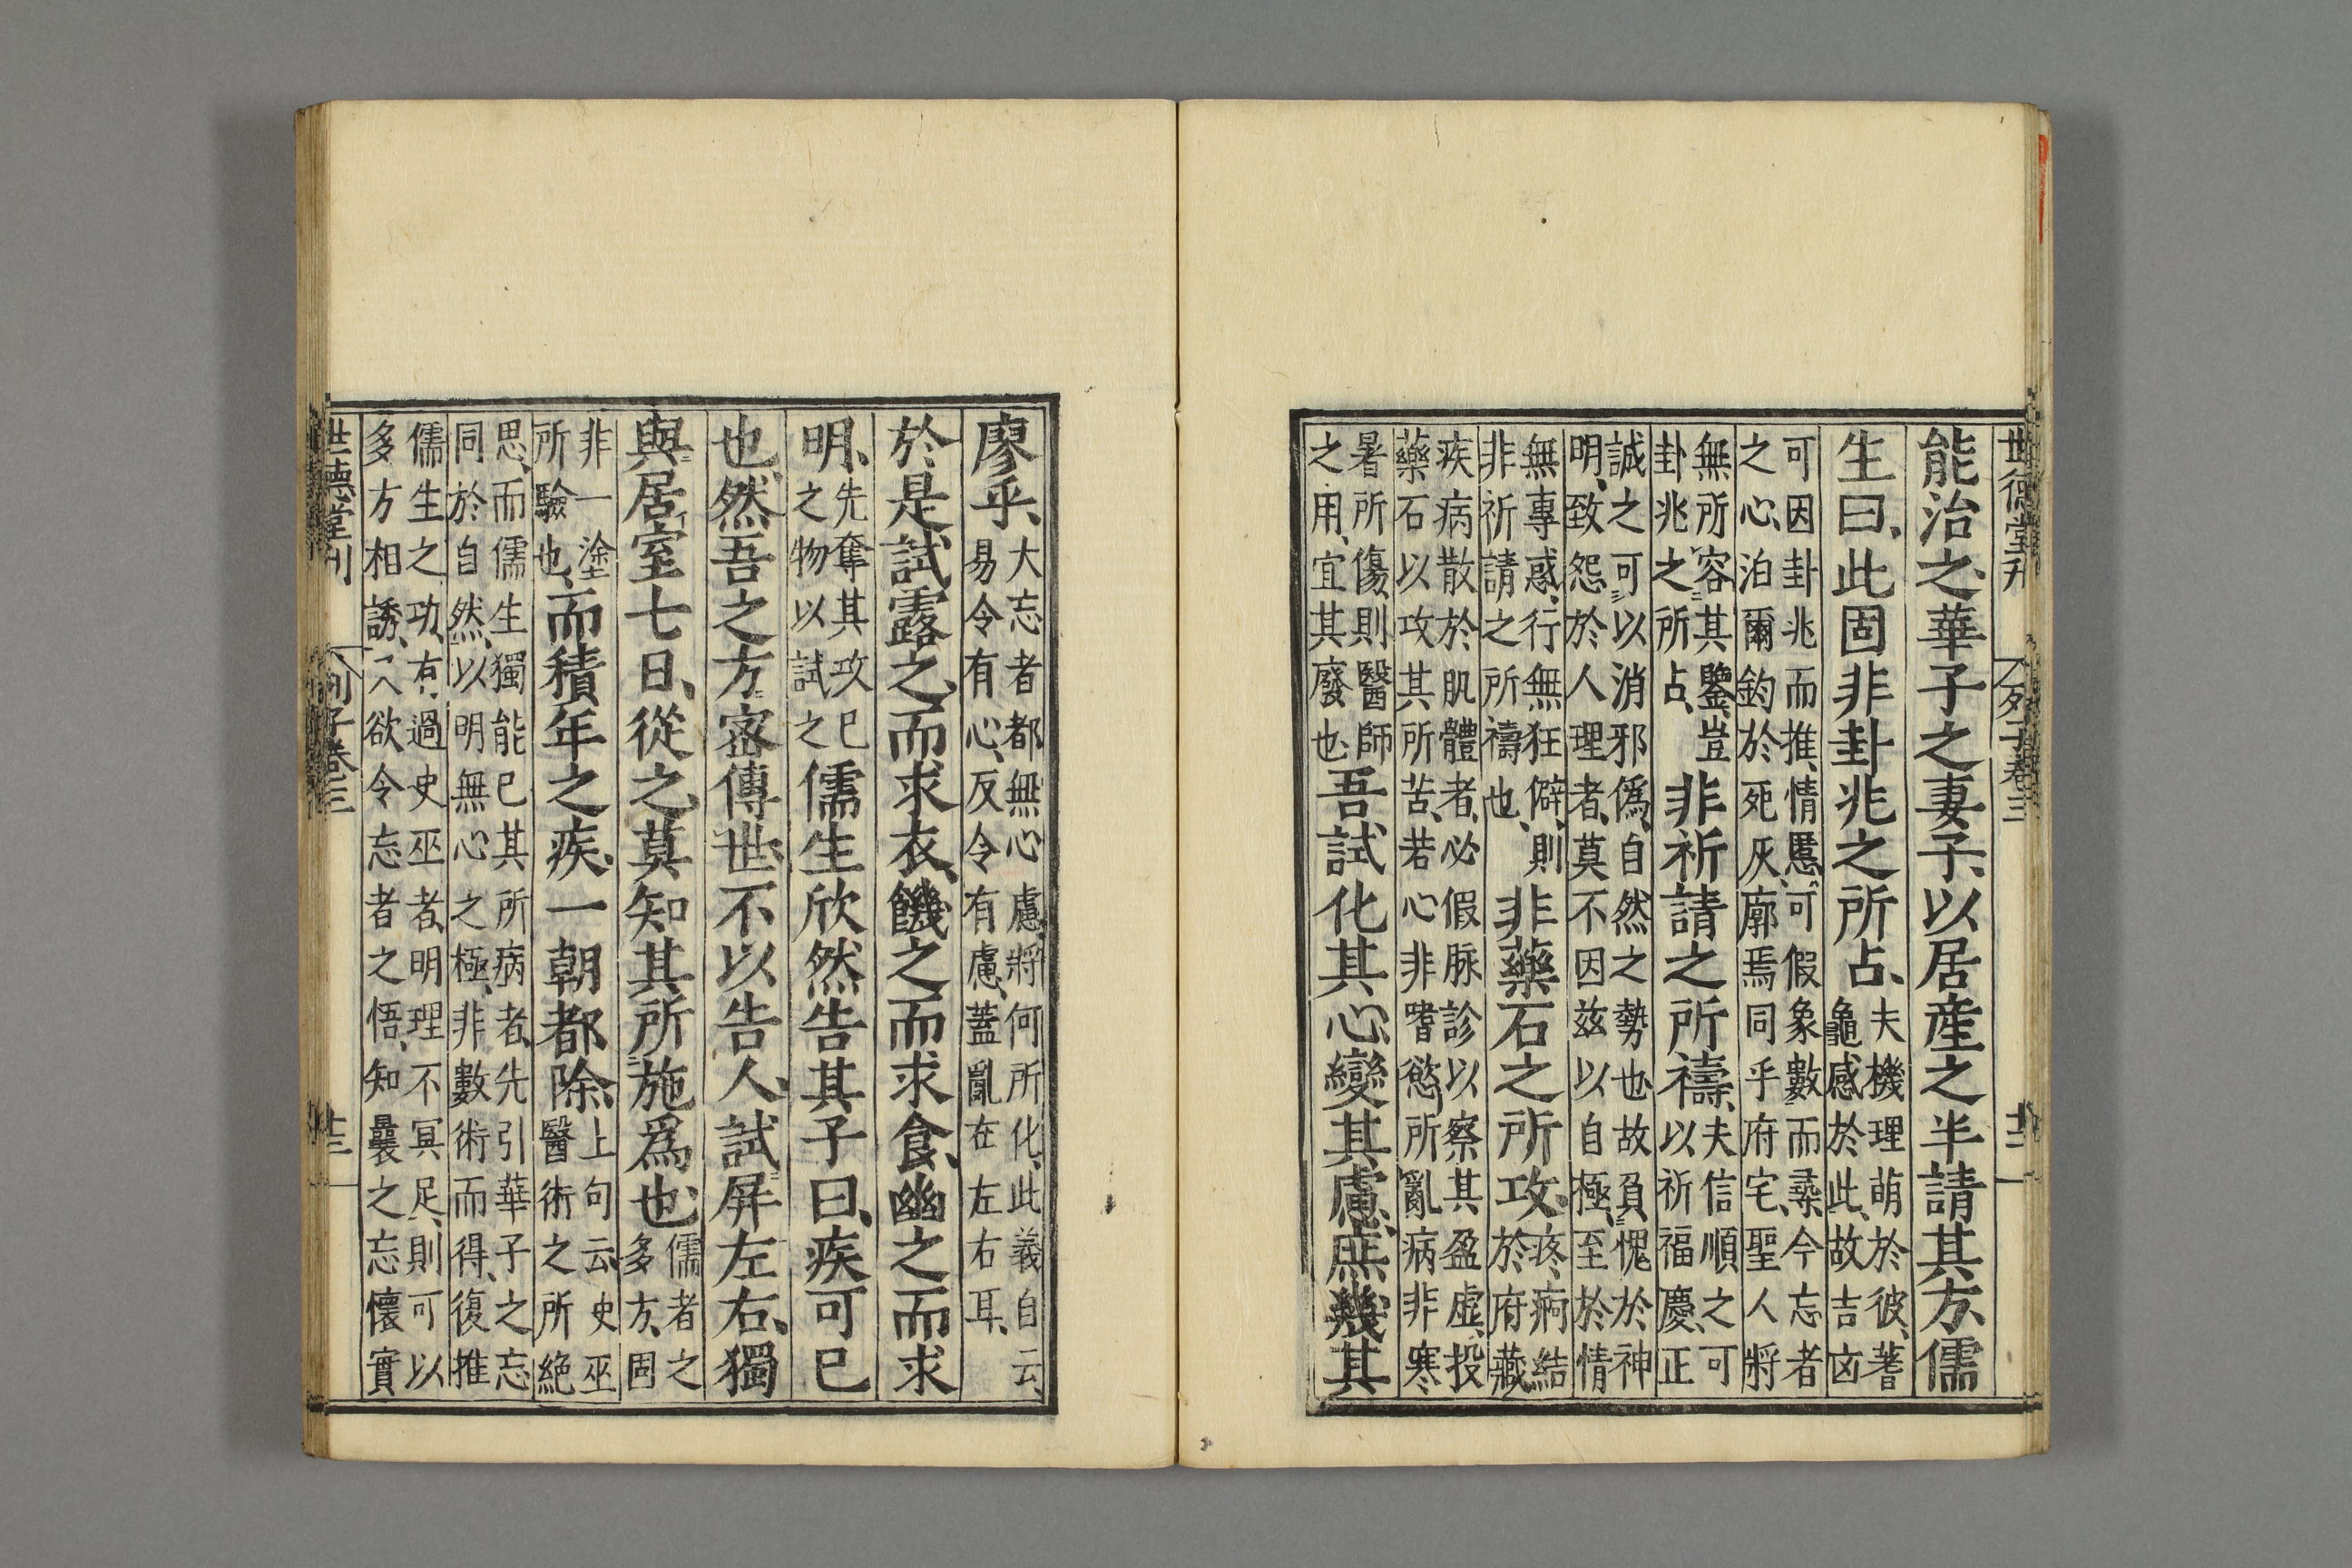 世德堂刊 列子卷三 廿二
能治之、華子之妻子、以居産之半請其方、儒
生曰、此固非卦兆之所占、夫機理萌於彼、蓍
龜感於此、故吉凶
可因卦兆而推、情慝、可假象數而尋、今忘者
之心、泊爾鈞於死灰廓焉同乎府宅、聖人將
無所容其鑒、豈
卦兆之所占、非祈請之所禱、夫信順之、可
以祈福慶、正
誠之可以消邪僞、自然之勢也、故負愧於神
明、致怨於人理者、莫不因兹以自極、至於情
無專惑、行無狂僻、則
非祈請之所禱也、非藥石之所攻、疾痾結
於府藏
疾病散於肌體者、必假脉診以察其盈虚、投
藥石以攻其所苦、若心非嗜慾、所亂病非寒
暑所傷、則醫師
之用、宜其廢也、吾試化其心、變其慮、庶幾其
廖乎、大忘者都無心慮、將何所化、此義自云、
易令有心、反令有慮、蓋亂在左右耳、
於是試露之、而求衣、饑之、而求食、幽之而求
明、先奪其攻已
之物以試之儒生欣然告其子曰、疾可已
也、然吾之方宻傳世、不以告人、試屏左右、獨
與居室七日、從之、莫知其所施爲也、儒者之
多方、固
非一塗
所驗也、而積年之疾、一朝都除、上句云、史巫
醫術之所絶
思、而儒生獨能已其所病者、先引華子之忘
同於自然、以明無心之極、非數術而得、復推
儒生之功、有過史巫者、明理不冥足、則可以
多方相誘、又欲令忘者之悟、知曩之忘懷實
世德堂刊 列子卷三 廿三